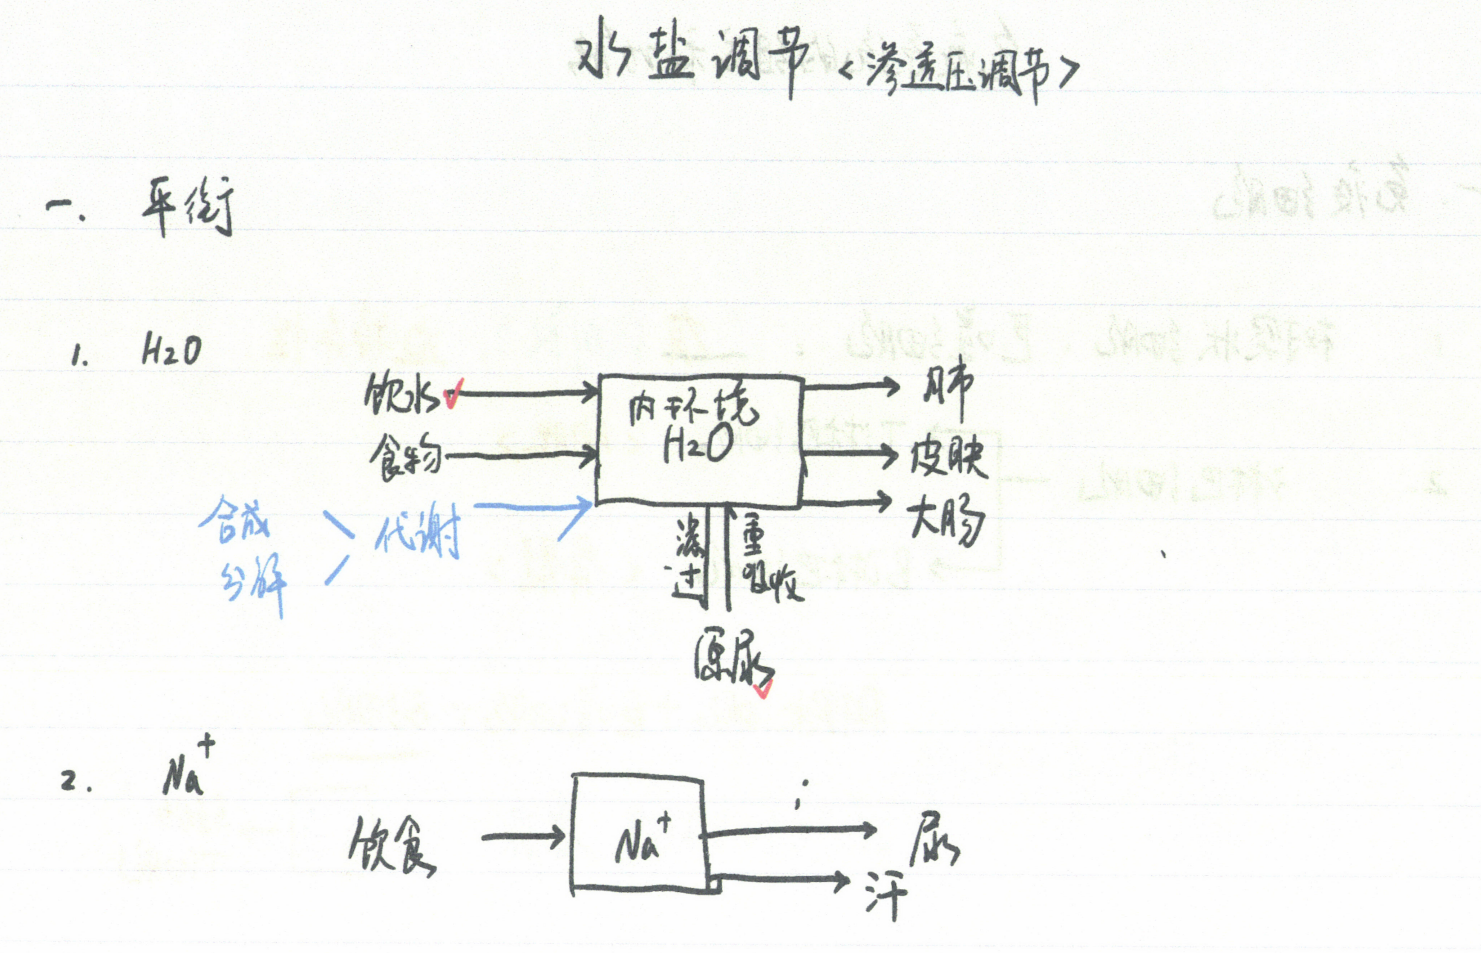 水盐调节<渗透压调节>
一. 平衡
1. H2O
饮水
食物
合成
分解
代谢
内环境
H2O
肺
皮肤
大肠
滤过
重吸收
原尿
2. Na+
饮食
Na+
尿
汗